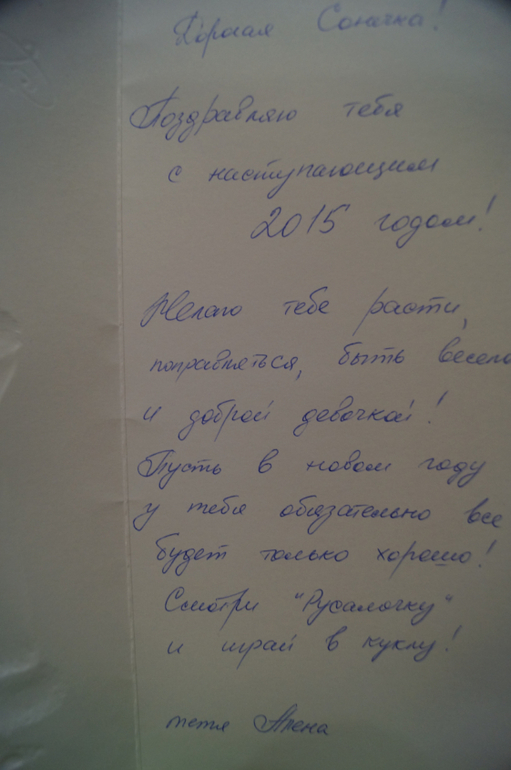 Дорогая Сонечка!
Поздравляю тебя
с наступающим
2015 годом!
Желаю тебе расти,
поправляться, быть весело
и доброй девочкой!
Пусть в новом году
у тебя обязательно все
будет только хорошо!
Смотри "Русалочку"
и играй в куклу!
тетя Алена